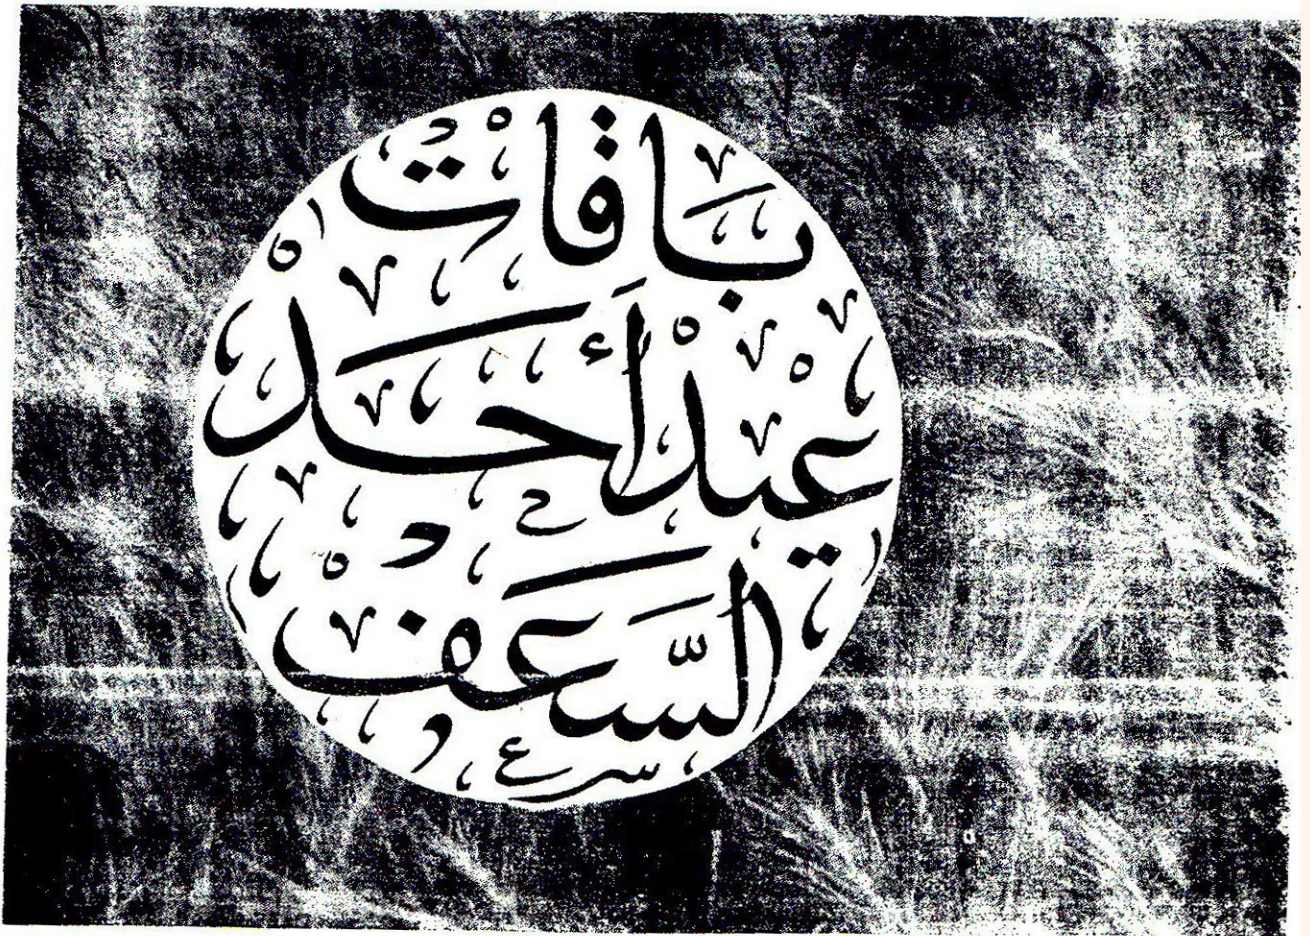 بَاقاتْ
عيْدْ أَحَدْ
السَّعَفْ